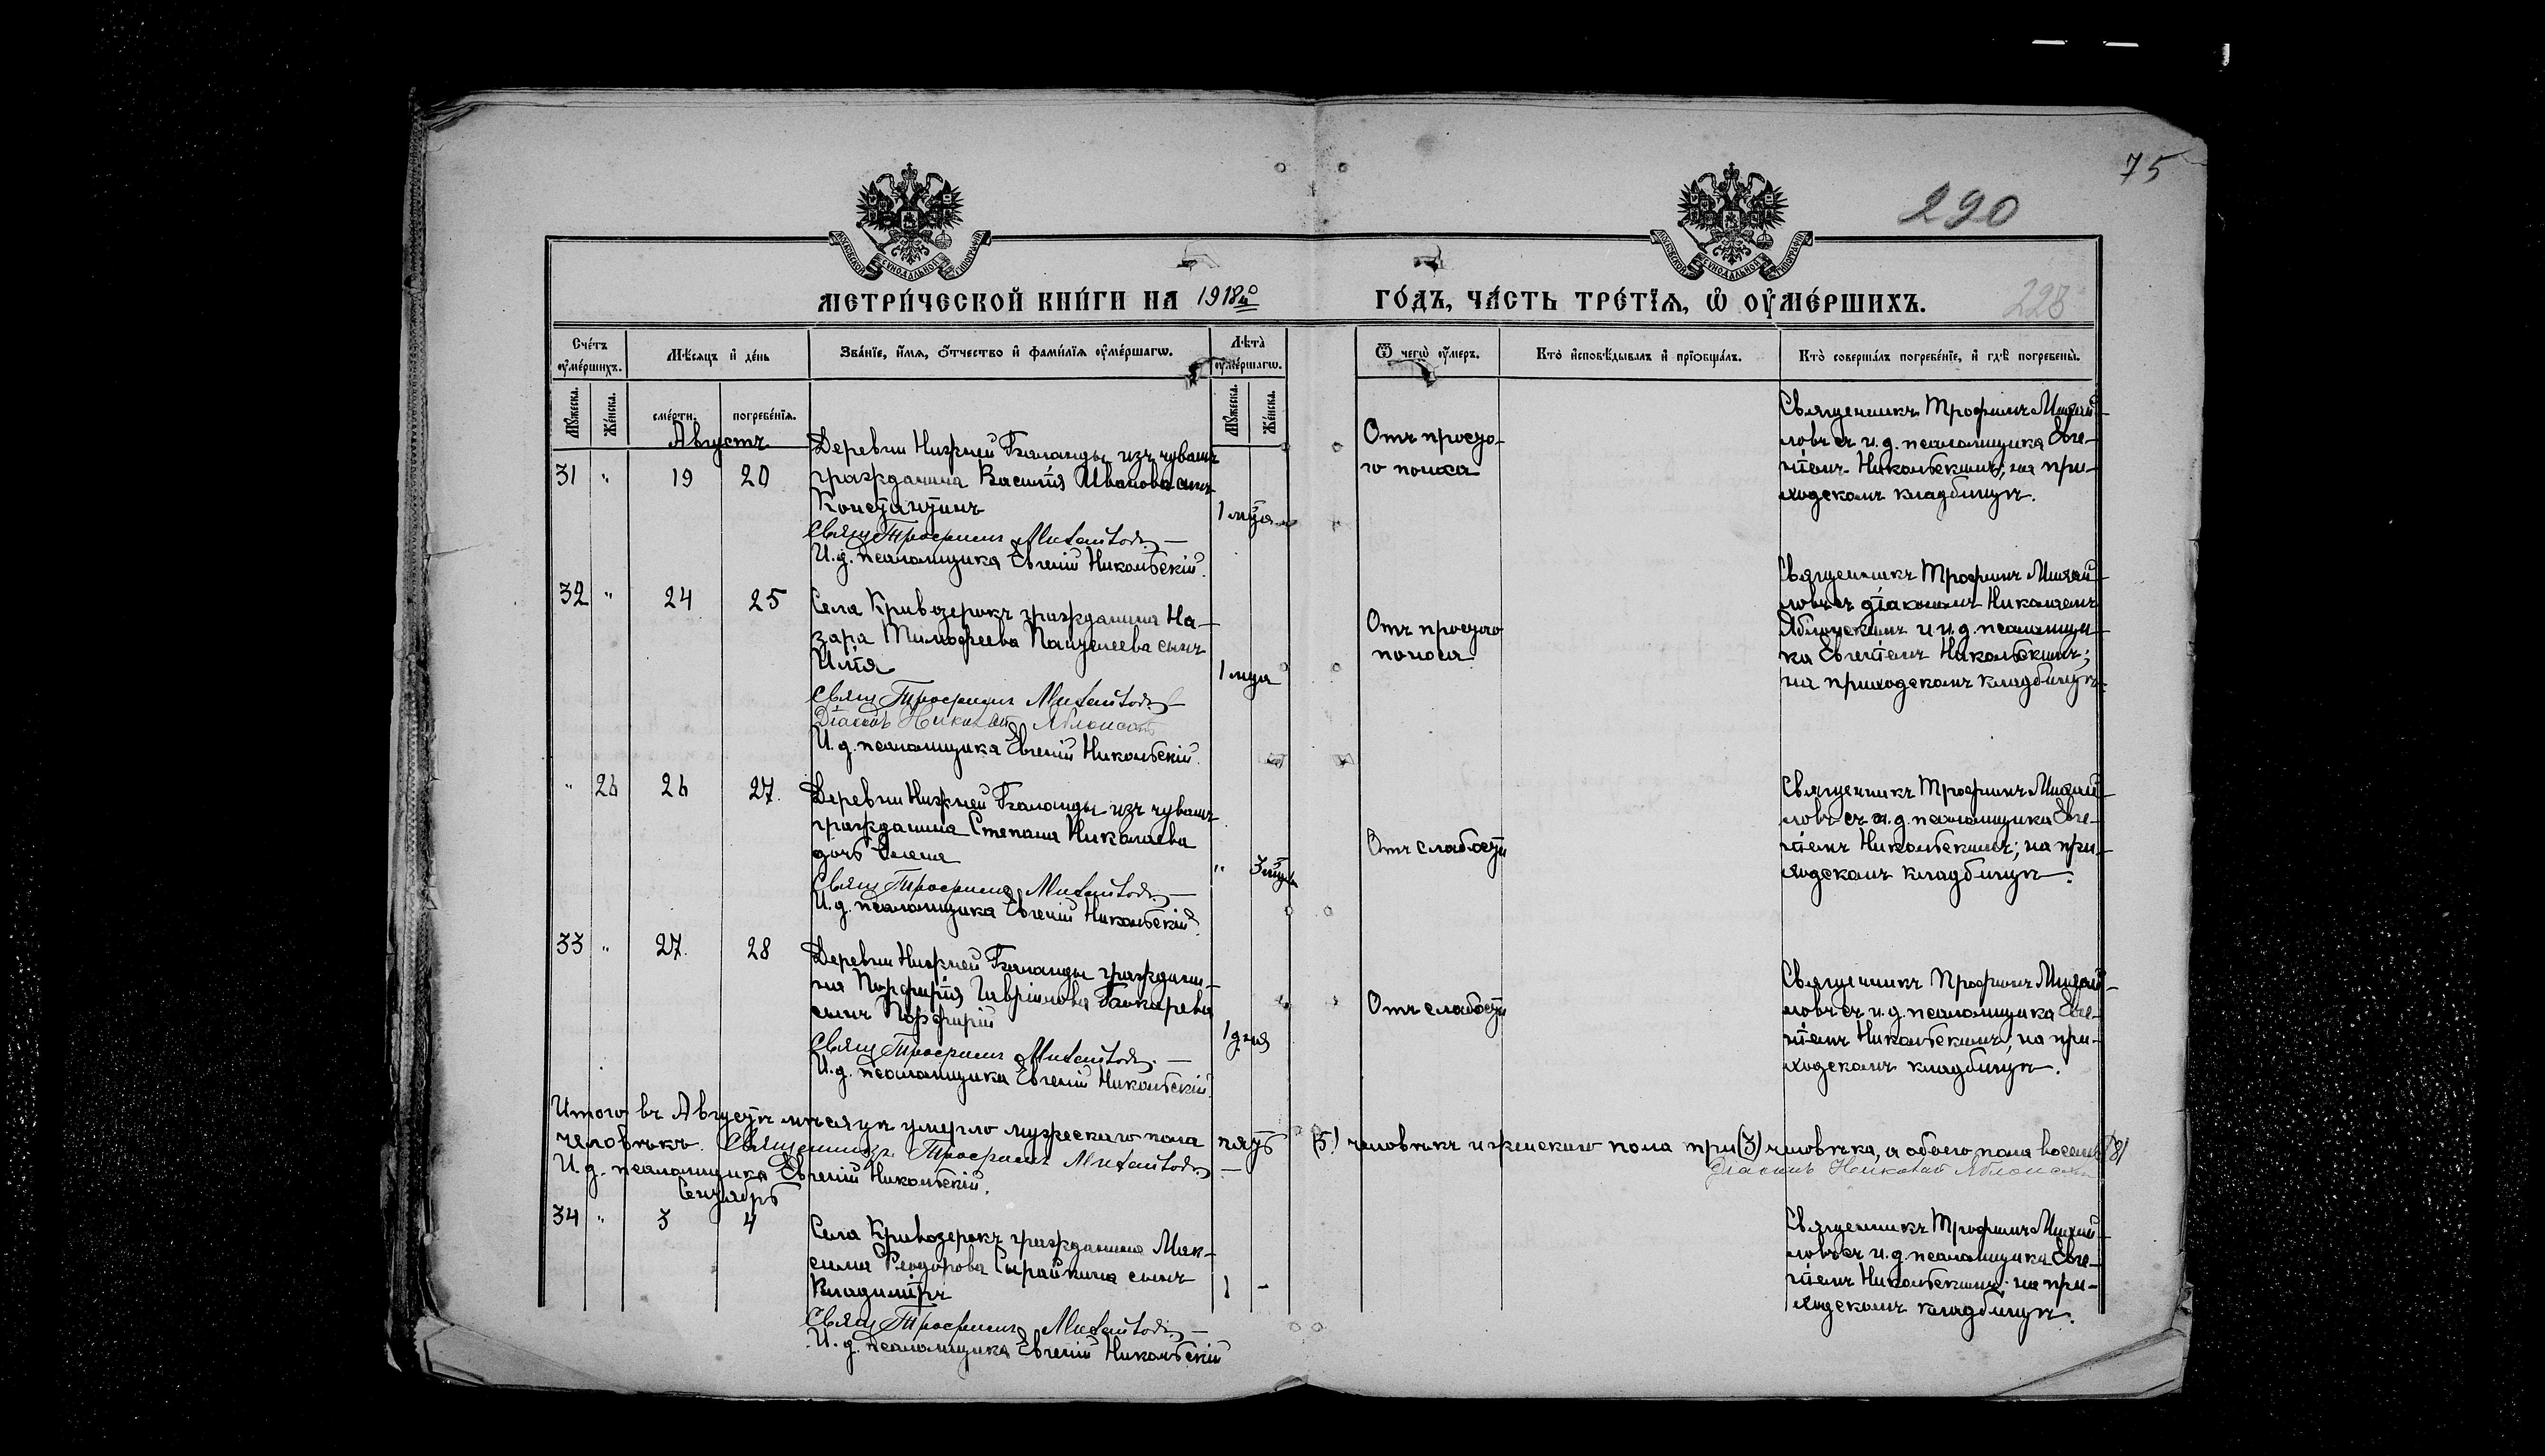 75
290
228
МОСКОВСКОЙ СѴНОДАЛЬНОЙ ТИПОГРАФІИ
МОСКОВСКОЙ СѴНОДАЛЬНОЙ ТИПОГРАФІИ
МЕТРИ́ЧЕСКОЙ КНИ́ГИ НА 1918й ГО́ДЪ, ЧА́СТЬ ТРЕ́ТІѦ, Ѡ҆ ОУ҆МЕ́РШИХЪ.
Сче́тъ оу҆ме́ршихъ.
Мѣ́сяцъ и҆ де́нь
Зва́нїе, и҆́мя, о҆́тчество и҆ фами́лїя оу҆ме́ршагѡ.
Лѣ́та оу҆ме́ршагѡ.
Ѿ чегѡ̀ оу҆́меръ.
Кто̀ и҆сповѣ́дывалъ и҆ прїѡбща́лъ.
Кто̀ соверша́лъ погребе́нїе, и҆ гдѣ̀ погребены̀.
Мꙋ́жеска.
Же́нска.
сме́рти.
погребе́нїя.
Мꙋ́жеска.
Же́нска.
Августъ
31 " 19 20
Деревни Нижней Баланды изъ чувашъ
гражданина Василія Иванова сынъ
Константинъ
Свящ Трофимъ Михайловъ
И. д. псаломщика Евгеній Никольскій.
1 м-ца
Отъ просто-
го поноса
Священникъ Трофимъ Михай-
ловъ съ и. д. псаломщика Евге-
ніемъ Никольскимъ; на при-
ходскомъ кладбищѣ.
32 " 24 25
Села Кривозерокъ гражданина На-
зара Тимофеева Пантелеева сынъ
Илія
Свящ Трофимъ Михайловъ
Діаконъ Николай Яблонскій
И. д. псаломщика Евгеній Никольскій.
1 м-ца
Отъ простого
поноса
Священникъ Трофимъ Михай-
ловъ съ діакономъ Николаемъ
Яблонскимъ и и. д. псаломщи-
ка Евгеніемъ Никольскимъ;
на приходскомъ кладбищѣ.
" 26 26 27.
Деревни Нижней Баланды изъ чувашъ
гражданина Степана Николаева
дочь Елена
Свящ Трофимъ Михайловъ
И. д. псаломщика Евгеній Никольскій.
"
Отъ слабости
Священникъ Трофимъ Михай-
ловъ съ и. д. псаломщика Евге-
ніемъ Никольскимъ; на при-
ходскомъ кладбищѣ.
33 " 27. 28
Деревни Нижней Баланды граждани-
на Порфирія Гаврилова сынъ Порфирій
Свящ Трофимъ Михайловъ
И. д. псаломщика Евгеній Никольскій.
1 дня
Отъ слабости
Священникъ Трофимъ Михай-
ловъ съ и. д. псаломщика Евге-
ніемъ Никольскимъ; на при-
ходскомъ кладбищѣ.
Итого въ Августѣ мѣсяцѣ умерло мужескаго пола пять (5) человѣкъ и женскаго пола три (3) человѣка, а обоего пола восемь (8)
человѣкъ. Священникъ Трофимъ Михайловъ
Діаконъ Николай Яблонскій
И. д. псаломщика Евгеній Никольскій.
Сентябрь
34 " 3 4
Села Кривозерокъ гражданина Мак-
сима Ѳеодорова Сырайкина сынъ
Владиміръ
Свящ Трофимъ Михайловъ
И. д. псаломщика Евгеній Никольскій
1 -
Священникъ Трофимъ Михай-
ловъ съ и. д. псаломщика Евге-
ніемъ Никольскимъ; на при-
ходскомъ кладбищѣ.